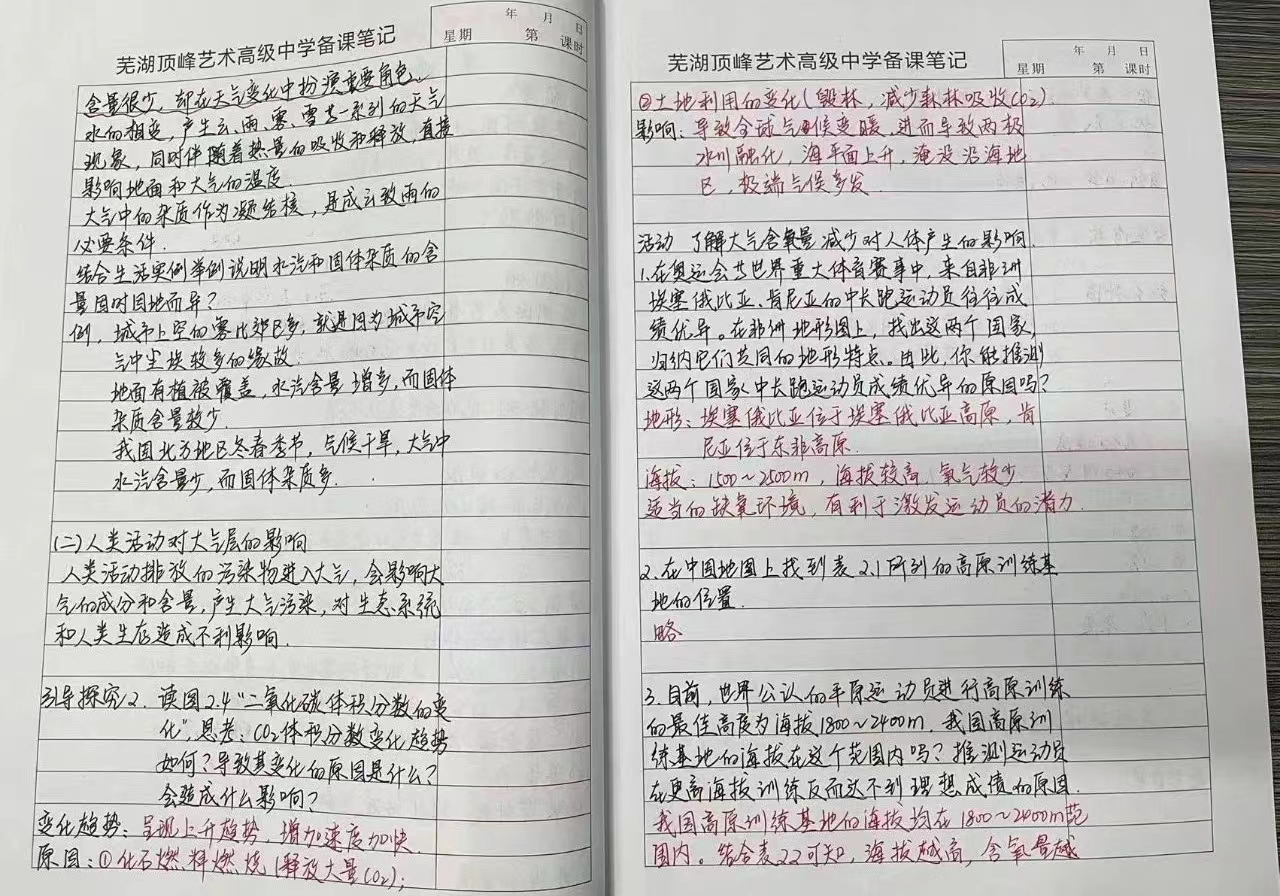 芜湖顶峰艺术高级中学备课笔记
年 月 日
星期 第 课时
含量很少,却在天气变化中扮演重要角色。
水的相变,产生云、雨、雾、雪等一系列的天气
现象,同时伴随着热量的吸收和释放,直接
影响地面和大气的温度.
大气中的杂质作为凝结核,是成云致雨的
必要条件.
结合生活实例举例说明水汽和固体杂质的含
量因时因地而异?
例,城市上空的雾比郊区多,就是因为城市空
气中尘埃较多的缘故
地面有植被覆盖,水汽含量增多,而固体
杂质含量较少.
我国北方地区冬春季节,气候干旱,大气中
水汽含量少,而固体杂质多.
(二)人类活动对大气层的影响
人类活动排放的污染物进入大气,会影响大
气的成分和含量,产生大气污染,对生态系统
和人类生存造成不利影响.
引导探究2.读图2.4“二氧化碳体积分数的变
化”,思考、CO2体积分数变化趋势
如何?导致其变化的原因是什么?
会造成什么影响?
变化趋势:呈现上升趋势,增加速度加快.
原因:①化石燃料燃烧(释放大量CO2);
芜湖顶峰艺术高级中学备课笔记
年 月 日
星期 第 课时
②土地利用的变化(毁林,减少森林吸收CO2)
影响:导致全球气候变暖,进而导致两极
冰川融化,海平面上升,淹没沿海地
区,极端气候多发.
活动 了解大气含氧量减少对人体产生的影响.
1.在奥运会等世界重大体育赛事中,来自非洲
埃塞俄比亚、肯尼亚的中长跑运动员往往成
绩优异。在非洲地形图上,找出这两个国家,
归纳它们共同的地形特点。由此,你能推测
这两个国家中长跑运动员成绩优异的原因吗?
地形:埃塞俄比亚位于埃塞俄比亚高原,肯
尼亚位于东非高原.
海拔:1500~2500m,海拔较高,氧气较少
适当的缺氧环境,有利于激发运动员的潜力.
2.在中国地图上找到表2.1所列的高原训练基
地的位置.
略
3.目前,世界公认的平原运动员进行高原训练
的最佳高度为海拔1800~2400m,我国高原训
练基地的海拔在这个范围内吗?推测运动员
在更高海拔训练反而达不到理想成绩的原因.
我国高原训练基地的海拔均在1800~2400m范
围内。结合表2.2可知,海拔越高,含氧量越